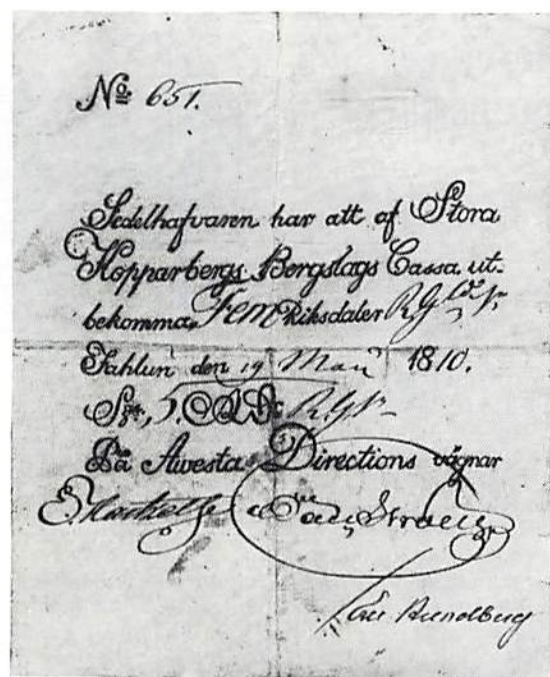 No 651.
Sedelhafvaren har att af Stora
Kopparbergs Bergslags Cassa ut-
bekomma, Fem Riksdaler RGldr
Fahlun den 19 Maij 1810.
5. RGr
På Awesta Directions vägnar
Rundberg